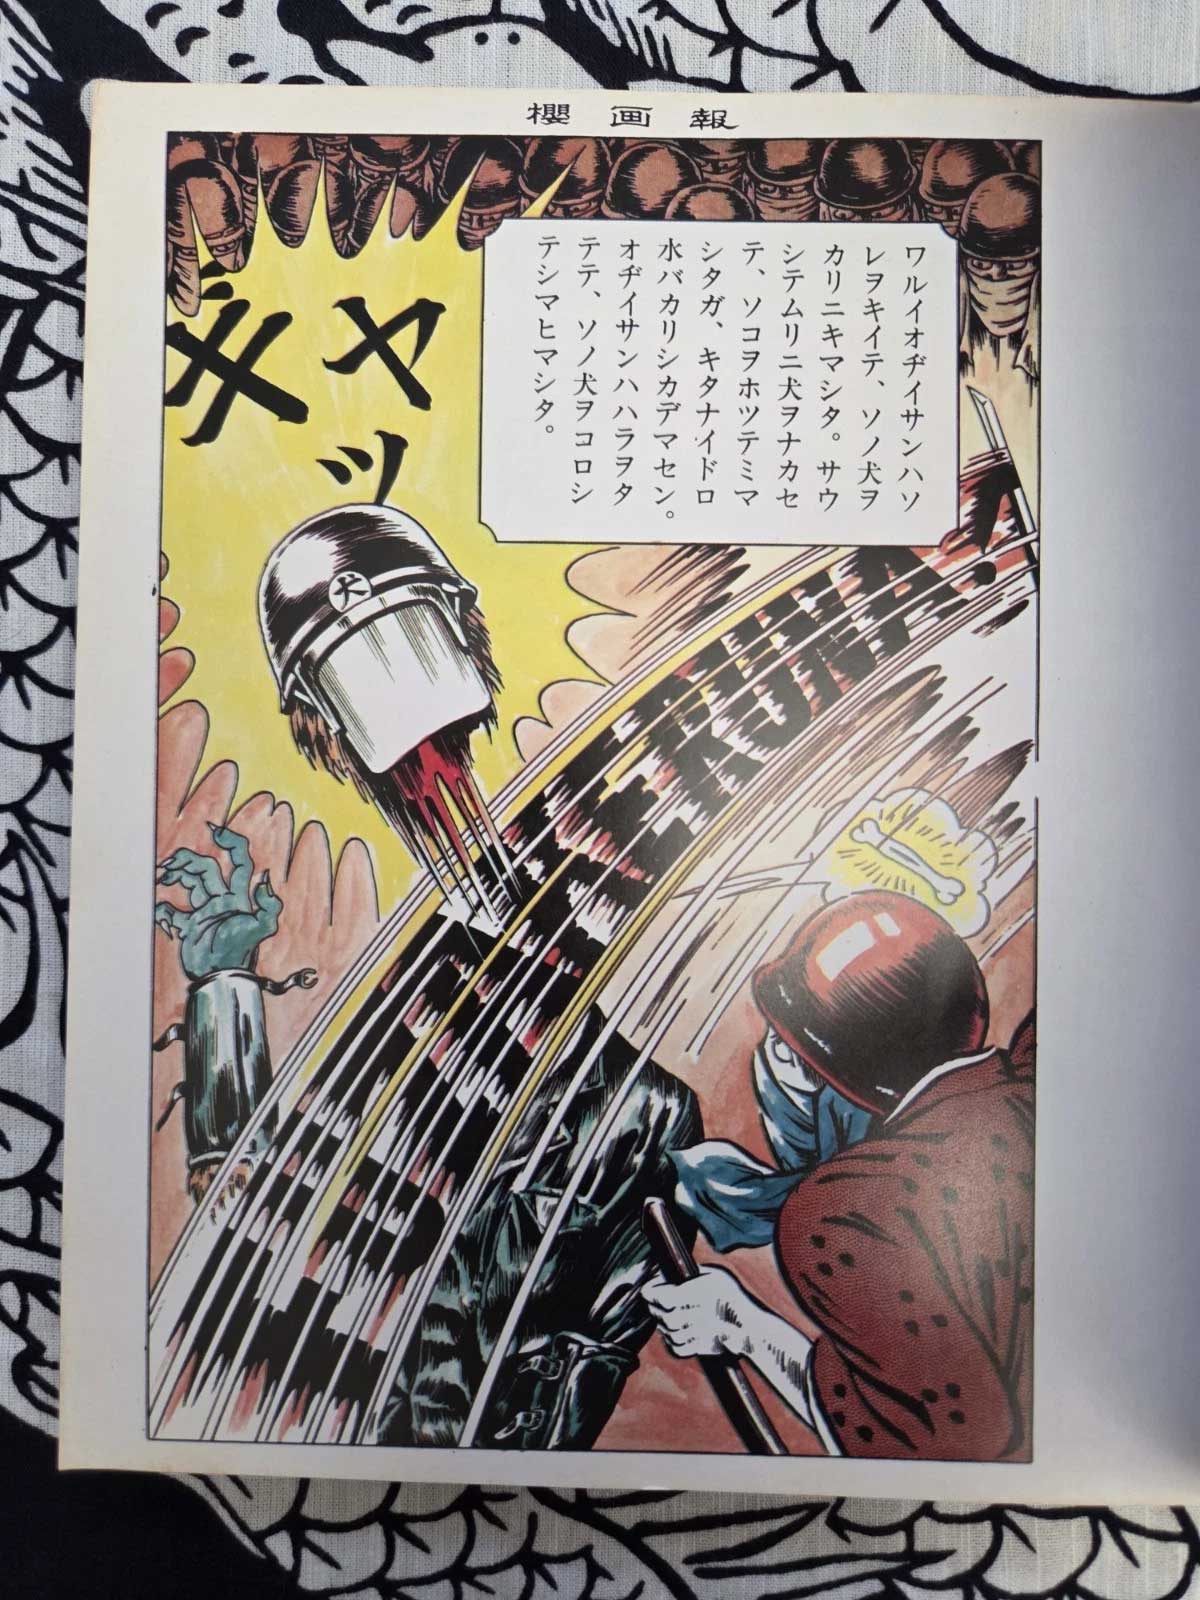 櫻画報
ワルイオヂイサンハソ
レヲキイテ、ソノ犬ヲ
カリニキマシタ。サウ
シテムリニ犬ヲナカセ
テ、ソコヲホツテミマ
シタガ、キタナイドロ
水バカリシカデマセン。
オヂイサンハハラヲタ
テテ、ソノ犬ヲコロシ
テシマヒマシタ。
ギ
ヤッ
犬